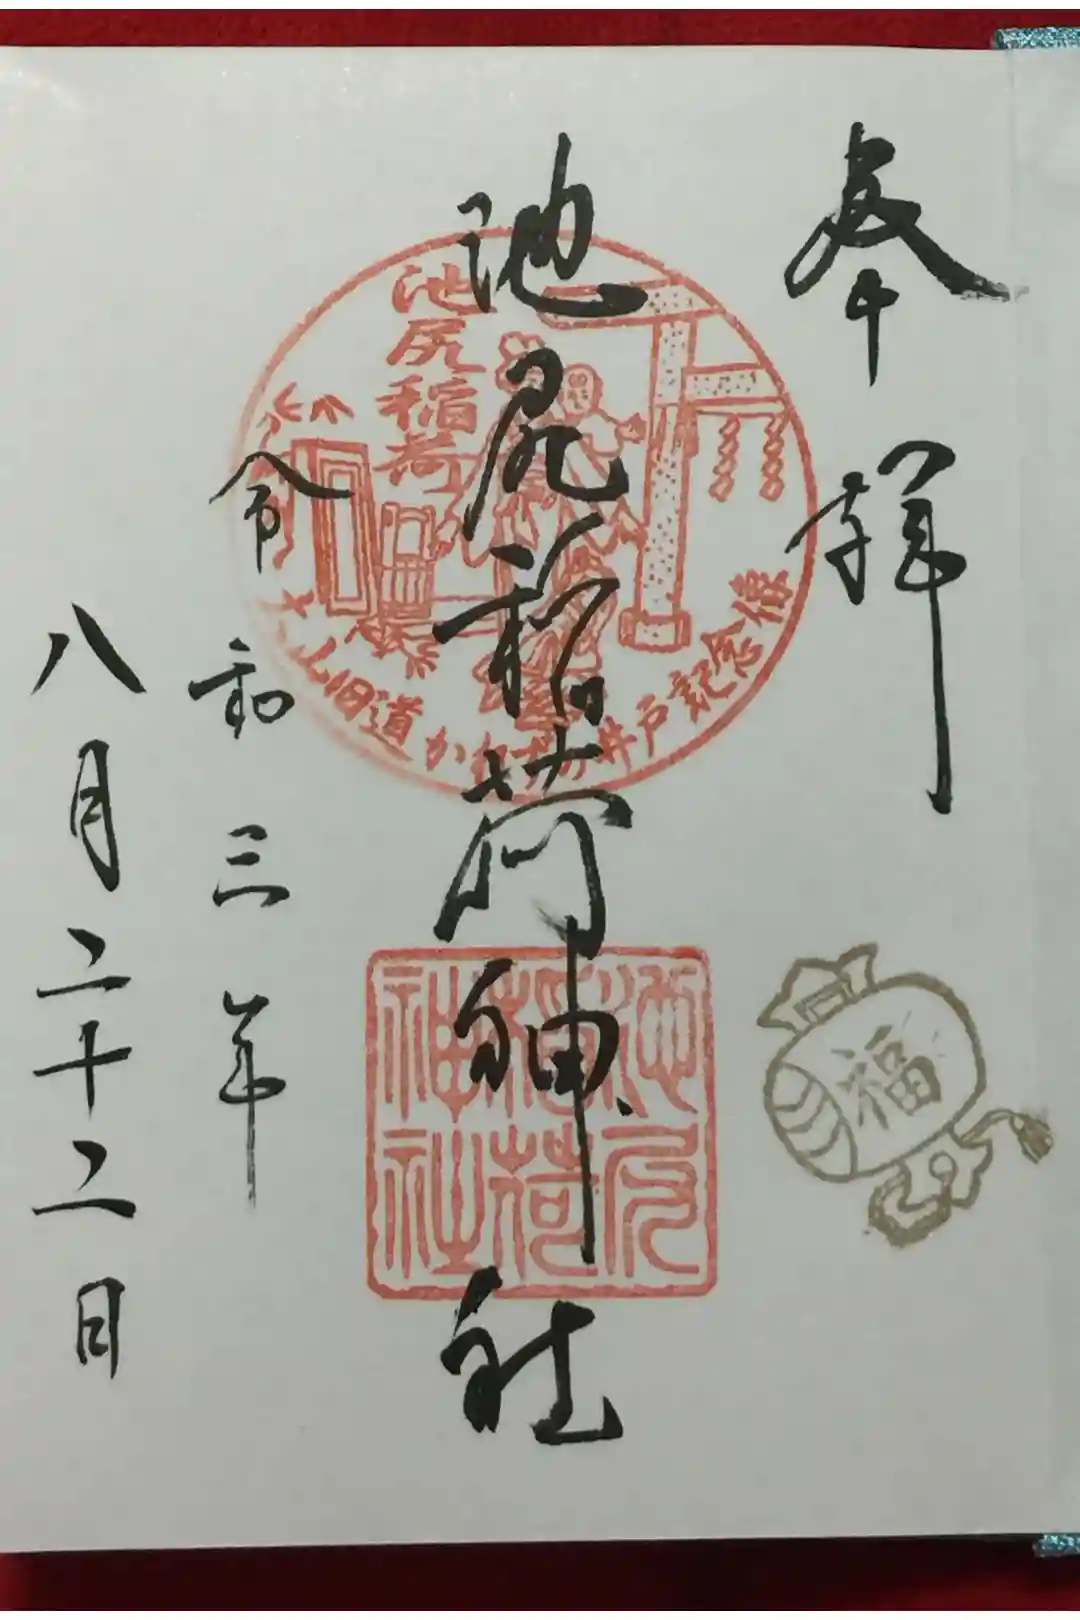 奉拝
福
池尻稲荷神社
池尻稲荷
大山旧道かれずの井戸記念像
池尻稲荷神社
令和三年
八月二十二日